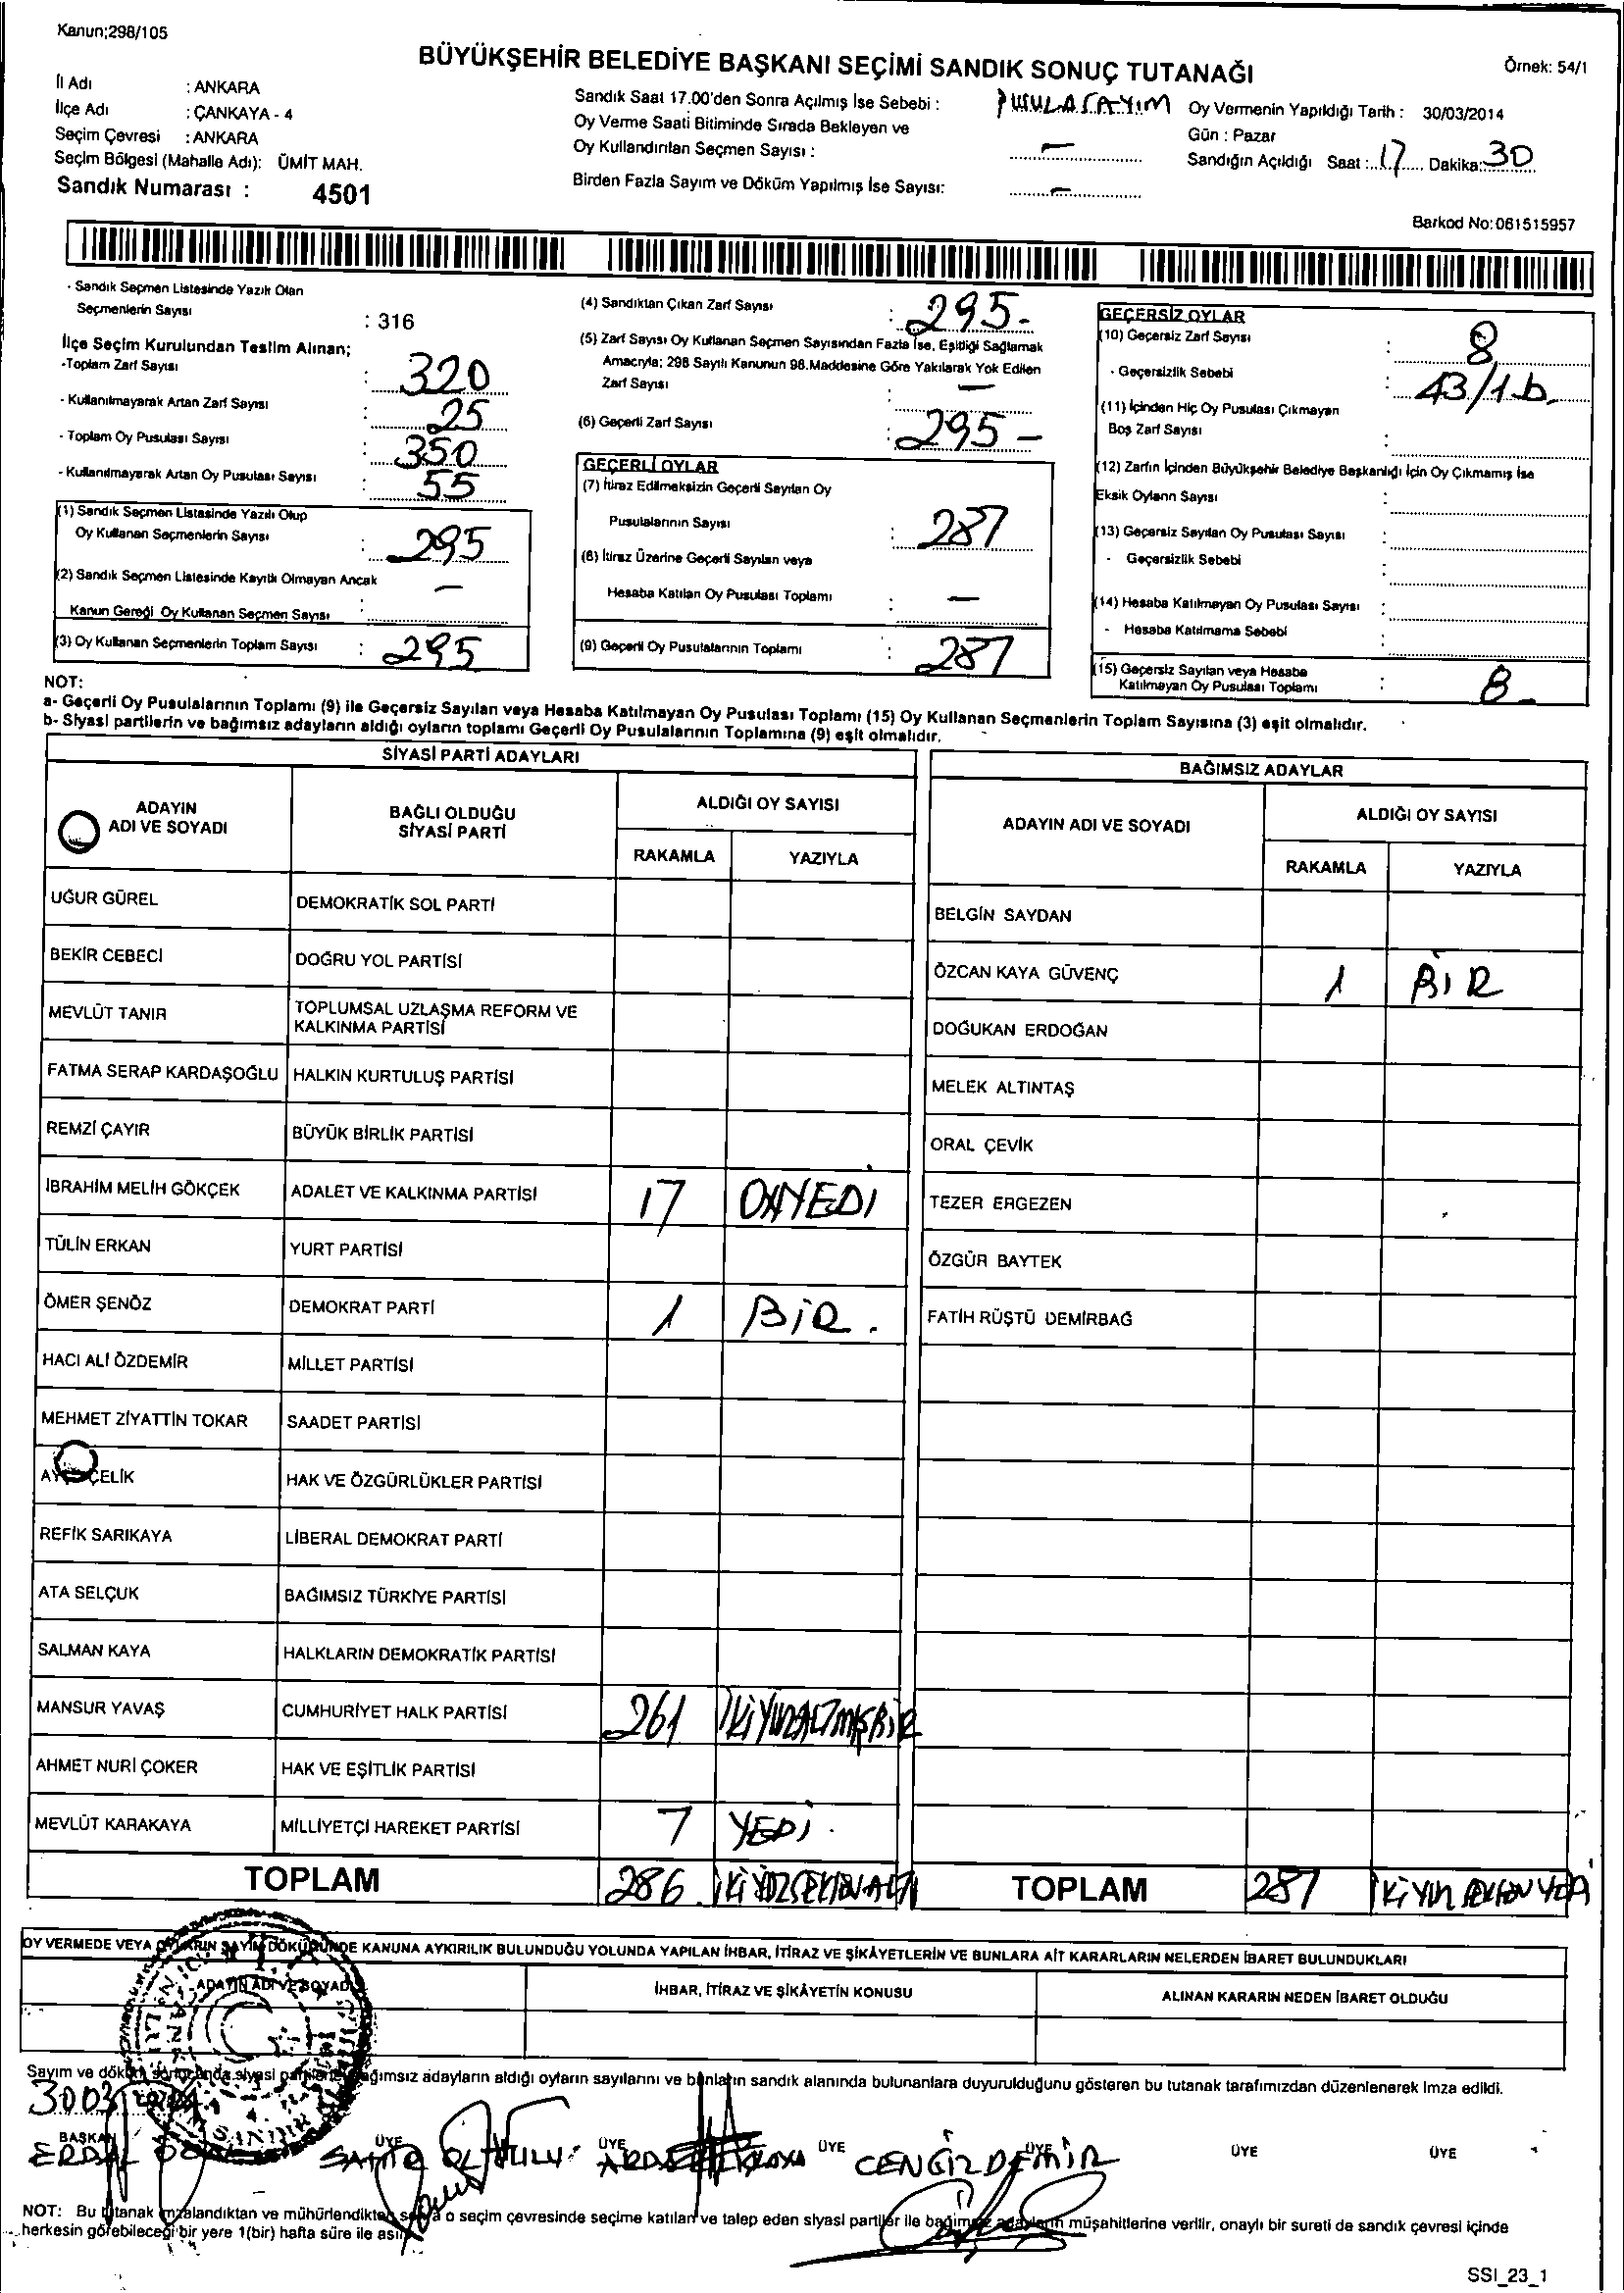 Kanun;298/105
BÜYÜKŞEHİR BELEDİYE BAŞKANI SEÇİMİ SANDIK SONUÇ TUTANAĞI
Örnek: 54/1
İl Adı : ANKARA
İlçe Adı : ÇANKAYA - 4
Seçim Çevresi : ANKARA
Seçim Bölgesi (Mahalle Adı): ÜMİT MAH.
Sandık Numarası : 4501
Sandık Saat 17.00'den Sonra Açılmış İse Sebebi : PUSULA SAYIM
Oy Verme Saati Bitiminde Sırada Bekleyen ve
Oy Kullandırılan Seçmen Sayısı : —
Birden Fazla Sayım ve Döküm Yapılmış İse Sayısı: —
Oy Vermenin Yapıldığı Tarih : 30/03/2014
Gün : Pazar
Sandığın Açıldığı Saat : 17 Dakika: 30
Barkod No:061515957
- Sandık Seçmen Listesinde Yazılı Olan
Seçmenlerin Sayısı : 316
İlçe Seçim Kurulundan Teslim Alınan;
-Toplam Zarf Sayısı : 320
- Kullanılmayarak Artan Zarf Sayısı : 25
- Toplam Oy Pusulası Sayısı : 350
- Kullanılmayarak Artan Oy Pusulası Sayısı : 55
(1) Sandık Seçmen Listesinde Yazılı Olup
Oy Kullanan Seçmenlerin Sayısı : 295
(2) Sandık Seçmen Listesinde Kayıtlı Olmayan Ancak
Kanun Gereği Oy Kullanan Seçmen Sayısı : —
(3) Oy Kullanan Seçmenlerin Toplam Sayısı : 295
(4) Sandıktan Çıkan Zarf Sayısı : 295-
(5) Zarf Sayısı Oy Kullanan Seçmen Sayısından Fazla İse, Eşitliği Sağlamak
Amacıyla; 298 Sayılı Kanunun 98.Maddesine Göre Yakılarak Yok Edilen
Zarf Sayısı : —
(6) Geçerli Zarf Sayısı : 295-
GEÇERLİ OYLAR
(7) İtiraz Edilmeksizin Geçerli Sayılan Oy
Pusulalarının Sayısı : 287
(8) İtiraz Üzerine Geçerli Sayılan veya
Hesaba Katılan Oy Pusulası Toplamı : —
(9) Geçerli Oy Pusulalarının Toplamı : 287
GEÇERSİZ OYLAR
(10) Geçersiz Zarf Sayısı : 8
- Geçersizlik Sebebi : 43/1-b.
(11) İçinden Hiç Oy Pusulası Çıkmayan
Boş Zarf Sayısı :
(12) Zarfın İçinden Büyükşehir Belediye Başkanlığı İçin Oy Çıkmamış İse
Eksik Oyların Sayısı :
(13) Geçersiz Sayılan Oy Pusulası Sayısı :
- Geçersizlik Sebebi :
(14) Hesaba Katılmayan Oy Pusulası Sayısı :
- Hesaba Katılmama Sebebi :
(15) Geçersiz Sayılan veya Hesaba
Katılmayan Oy Pusulası Toplamı : 8-
NOT:
a- Geçerli Oy Pusulalarının Toplamı (9) ile Geçersiz Sayılan veya Hesaba Katılmayan Oy Pusulası Toplamı (15) Oy Kullanan Seçmenlerin Toplam Sayısına (3) eşit olmalıdır.
b- Siyasi partilerin ve bağımsız adayların aldığı oyların toplamı Geçerli Oy Pusulalarının Toplamına (9) eşit olmalıdır.
SİYASİ PARTİ ADAYLARI
ADAYIN ADI VE SOYADI
BAĞLI OLDUĞU SİYASİ PARTİ
ALDIĞI OY SAYISI
RAKAMLA YAZIYLA
UĞUR GÜREL DEMOKRATİK SOL PARTİ
BEKİR CEBECİ DOĞRU YOL PARTİSİ
MEVLÜT TANIR TOPLUMSAL UZLAŞMA REFORM VE KALKINMA PARTİSİ
FATMA SERAP KARDAŞOĞLU HALKIN KURTULUŞ PARTİSİ
REMZİ ÇAYIR BÜYÜK BİRLİK PARTİSİ
İBRAHİM MELİH GÖKÇEK ADALET VE KALKINMA PARTİSİ 17 ONYEDİ
TÜLİN ERKAN YURT PARTİSİ
ÖMER ŞENÖZ DEMOKRAT PARTİ 1 BİR.
HACI ALİ ÖZDEMİR MİLLET PARTİSİ
MEHMET ZİYATTİN TOKAR SAADET PARTİSİ
ÇELİK HAK VE ÖZGÜRLÜKLER PARTİSİ
REFİK SARIKAYA LİBERAL DEMOKRAT PARTİ
ATA SELÇUK BAĞIMSIZ TÜRKİYE PARTİSİ
SALMAN KAYA HALKLARIN DEMOKRATİK PARTİSİ
MANSUR YAVAŞ CUMHURİYET HALK PARTİSİ 261 İKİYÜZALTMIŞBİR
AHMET NURİ ÇOKER HAK VE EŞİTLİK PARTİSİ
MEVLÜT KARAKAYA MİLLİYETÇİ HAREKET PARTİSİ 7 YEDİ.
TOPLAM 286 İKİYÜZSEKSENALTI
BAĞIMSIZ ADAYLAR
ADAYIN ADI VE SOYADI
ALDIĞI OY SAYISI
RAKAMLA YAZIYLA
BELGİN SAYDAN
ÖZCAN KAYA GÜVENÇ 1 BİR
DOĞUKAN ERDOĞAN
MELEK ALTINTAŞ
ORAL ÇEVİK
TEZER ERGEZEN
ÖZGÜR BAYTEK
FATİH RÜŞTÜ DEMİRBAĞ
TOPLAM 287
OY VERMEDE VEYA OYLARIN SAYIM DÖKÜMÜNDE KANUNA AYKIRILIK BULUNDUĞU YOLUNDA YAPILAN İHBAR, İTİRAZ VE ŞİKÂYETLERİN VE BUNLARA AİT KARARLARIN NELERDEN İBARET BULUNDUKLARI
ADAYIN ADI VE SOYADI
İHBAR, İTİRAZ VE ŞİKÂYETİN KONUSU
ALINAN KARARIN NEDEN İBARET OLDUĞU
Sayım ve döküm sonucunda siyasi partilerle bağımsız adayların aldığı oyların sayılarını ve bunların sandık alanında bulunanlara duyurulduğunu gösteren bu tutanak tarafımızdan düzenlenerek imza edildi.
BAŞKAN ÜYE ÜYE ÜYE ÜYE ÜYE ÜYE
ERDAL CENGİZ DEMİR
NOT: Bu tutanak imzalandıktan ve mühürlendikten sonra o seçim çevresinde seçime katılan ve talep eden siyasi partiler ile bağımsız adayların müşahitlerine verilir, onaylı bir sureti de sandık çevresi içinde
herkesin görebileceği bir yere 1(bir) hafta süre ile asılır
SSI_23_1